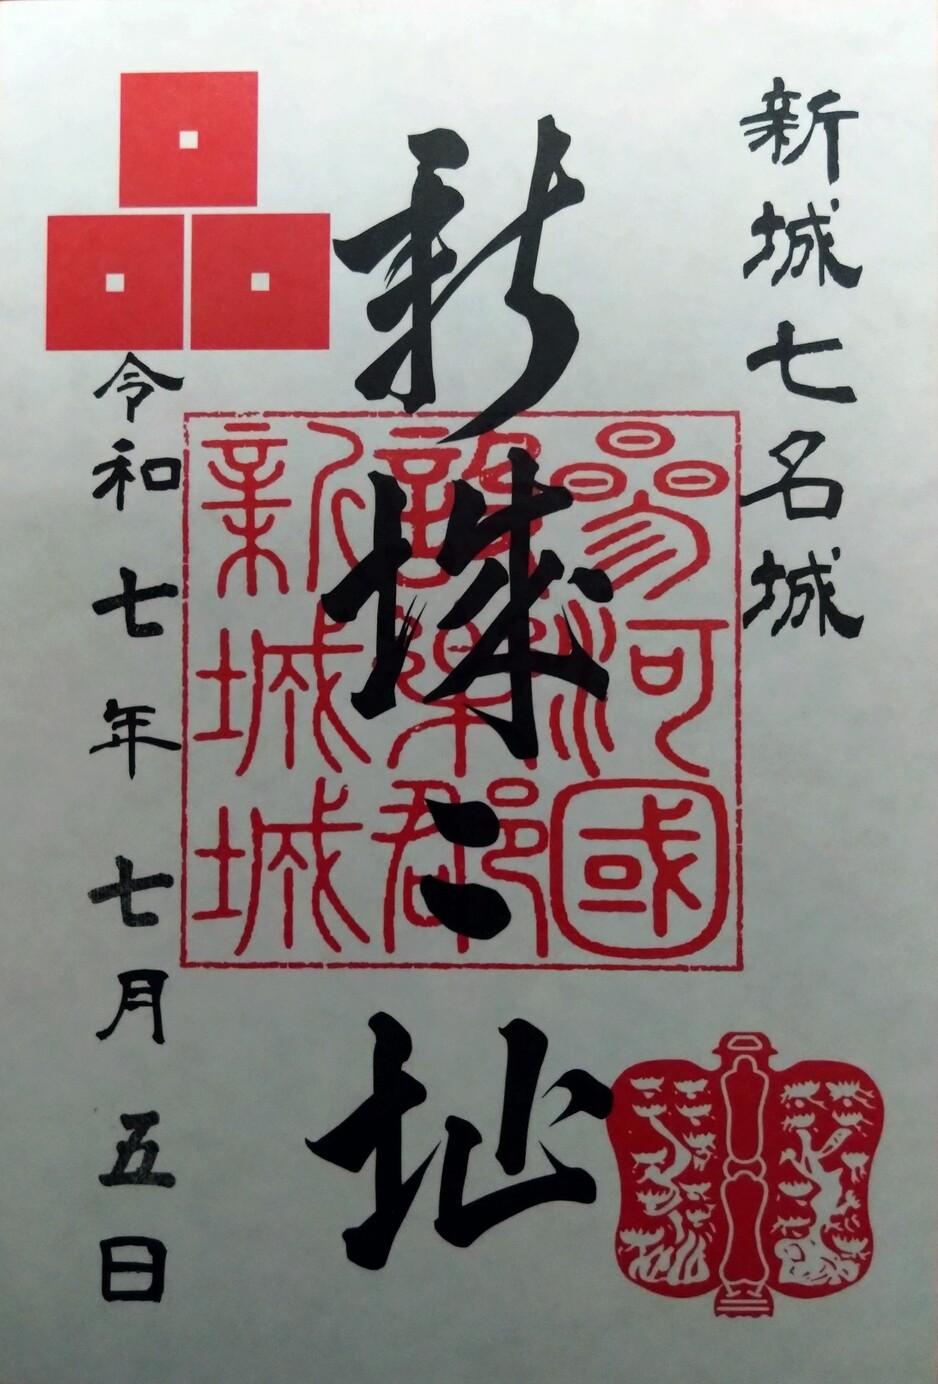 新城七名城
新城々址
參河國
設樂郡
新城城
令和七年七月五日